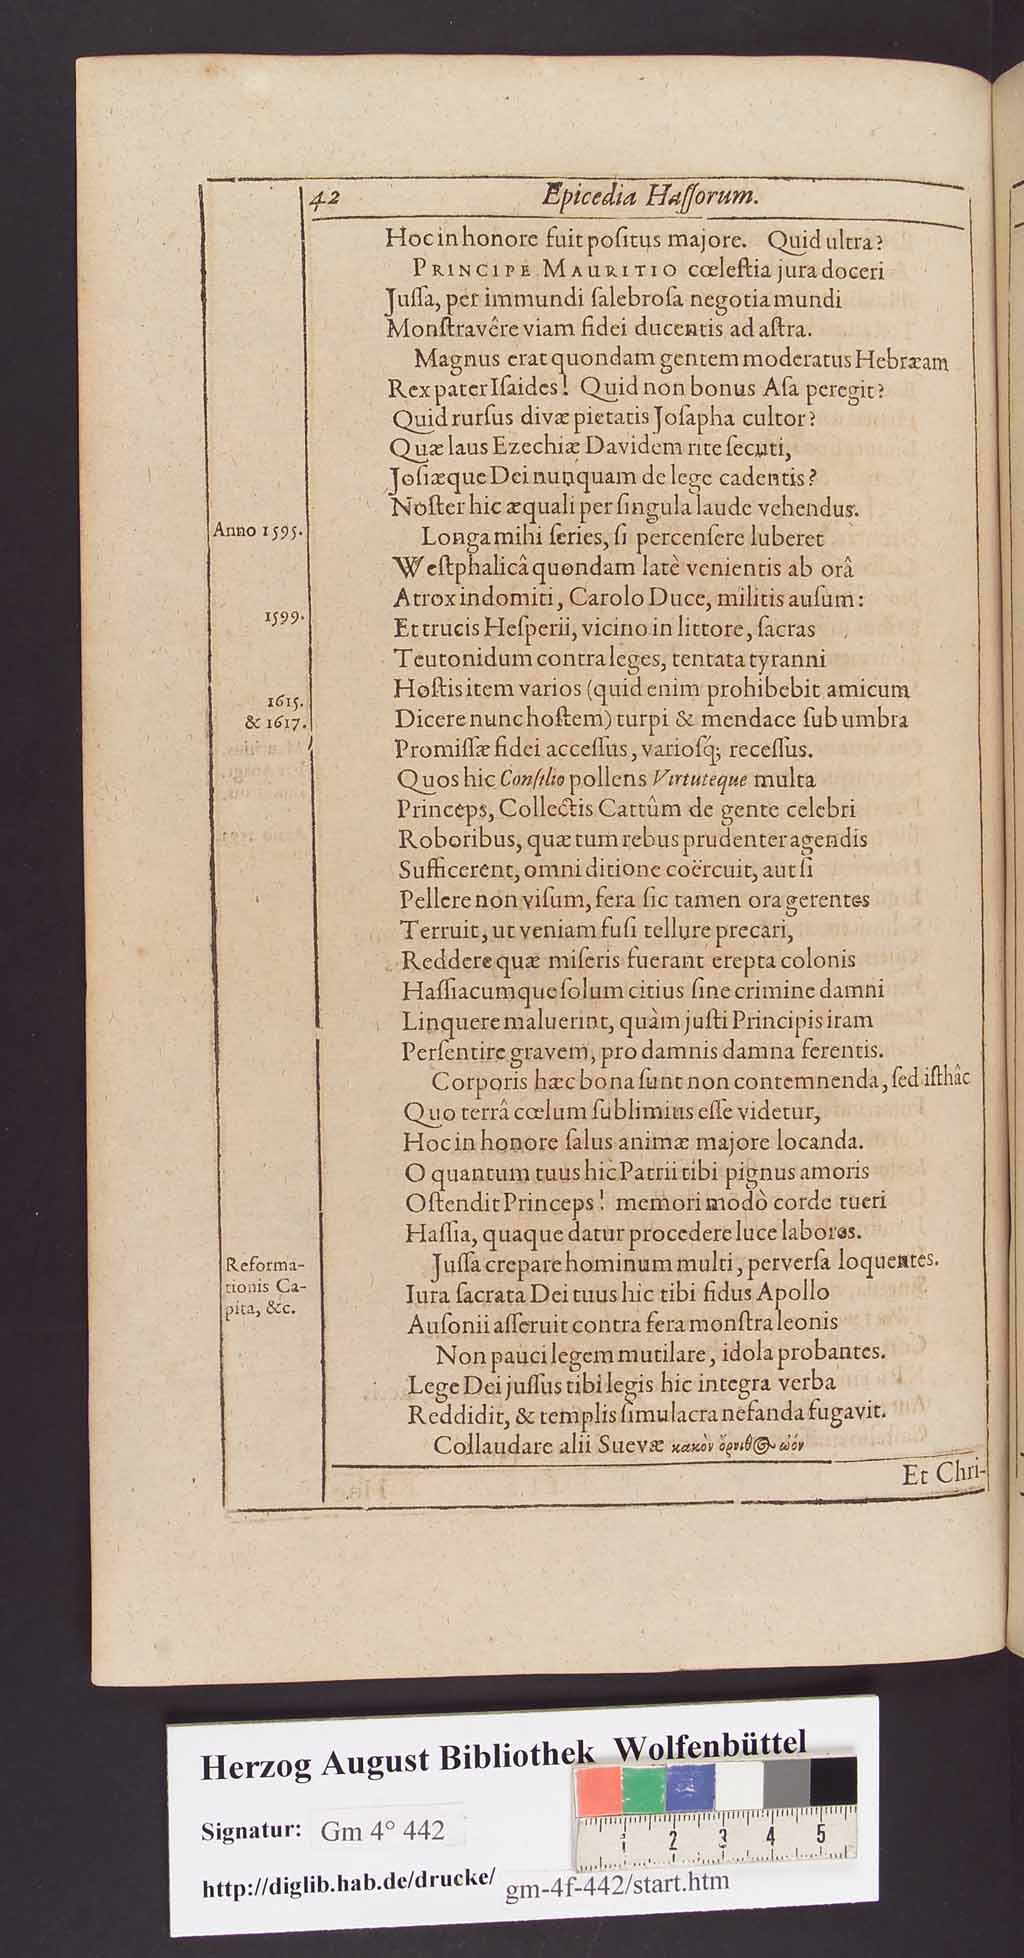 42 Epicedia Haſſorum.
Hoc in honore fuit poſitus majore. Quid ultra?
PRINCIPE MAURITIO cœleſtia jura doceri
Juſſa, per immundi ſalebroſa negotia mundi
Monſtravêre viam fidei ducentis ad aſtra.
Magnus erat quondam gentem moderatus Hebræam
Rex pater Iſaides! Quid non bonus Aſa peregit?
Quid rurſus divæ pietatis Joſapha cultor?
Quæ laus Ezechiæ Davidem rite ſecuti,
Joſiæque Dei nunquam de lege cadentis?
Noſter hic æquali per ſingula laude vehendus.
Anno 1595.
Longa mihi ſeries, ſi percenſere luberet
Weſtphalicâ quondam latè venientis ab orâ
Atrox indomiti, Carolo Duce, militis auſum:
1599.
Et trucis Heſperii, vicino in littore, ſacras
Teutonidum contra leges, tentata tyranni
Hoſtis item varios (quid enim prohibebit amicum
1615.
& 1617.
Dicere nunc hoſtem) turpi & mendace ſub umbra
Promiſſæ fidei acceſſus, varioſq; receſſus.
Quos hic Conſilio pollens Virtuteque multa
Princeps, Collectis Cattûm de gente celebri
Roboribus, quæ tum rebus prudenter agendis
Sufficerent, omni ditione coërcuit, aut ſi
Pellere non viſum, fera ſic tamen ora gerentes
Terruit, ut veniam fuſi tellure precari,
Reddere quæ miſeris fuerant erepta colonis
Haſſiacumque ſolum citius ſine crimine damni
Linquere maluerint, quàm juſti Principis iram
Perſentire gravem, pro damnis damna ferentis.
Corporis hæc bona ſunt non contemnenda, ſed iſthâc
Quo terrâ cœlum ſublimius eſſe videtur,
Hoc in honore ſalus animæ majore locanda.
O quantum tuus hic Patrii tibi pignus amoris
Oſtendit Princeps! memori modò corde tueri
Haſſia, quaque datur procedere luce labores.
Reforma-
tionis Ca-
pita, &c.
Juſſa crepare hominum multi, perverſa loquentes.
Iura ſacrata Dei tuus hic tibi fidus Apollo
Auſonii aſſeruit contra fera monſtra leonis
Non pauci legem mutilare, idola probantes.
Lege Dei juſſus tibi legis hic integra verba
Reddidit, & templis ſimulacra nefanda fugavit.
Collaudare alii Suevæ κακὸν ὄρνιθος ὠόν
Et Chri-
Herzog August Bibliothek Wolfenbüttel
Signatur: Gm 4° 442
http://diglib.hab.de/drucke/ gm-4f-442/start.htm
1 2 3 4 5